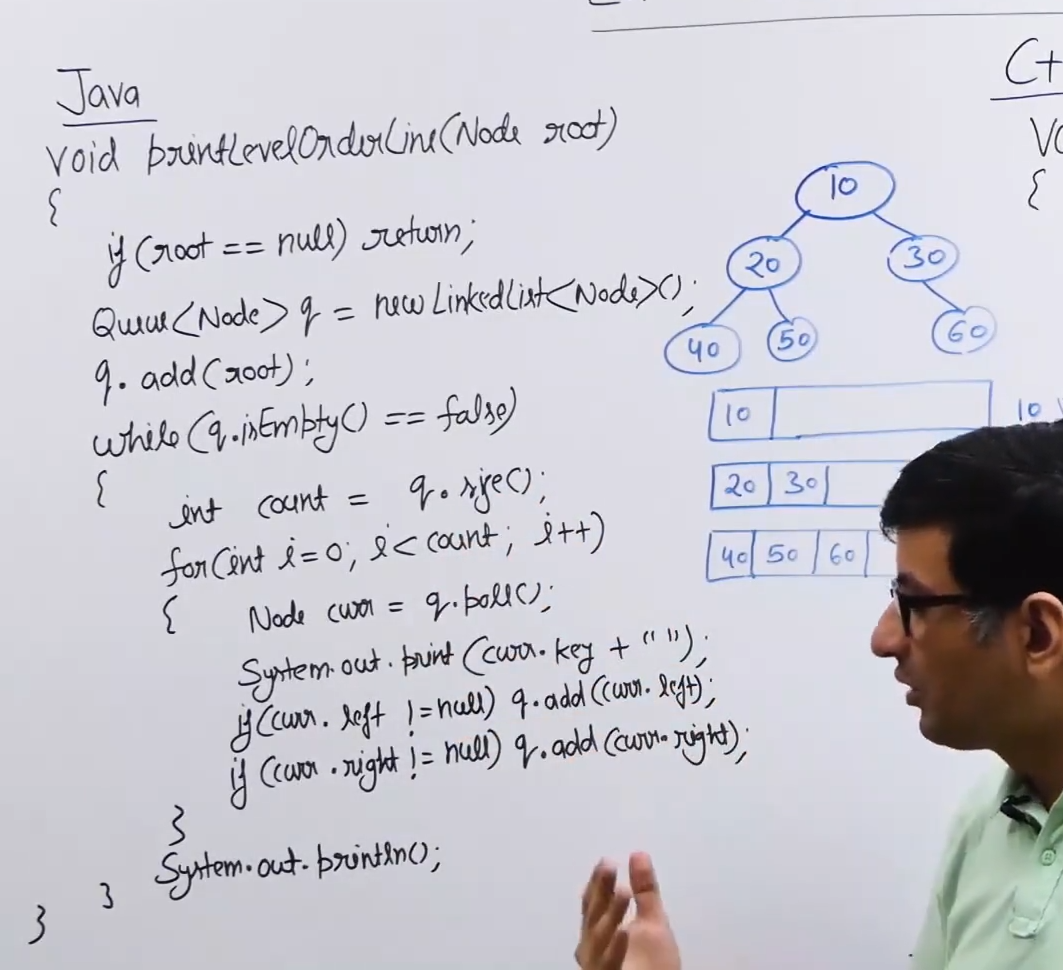 Java
void printLevelOrderLine(Node root)
{
if (root == null) return;
Queue<Node> q = new LinkedList<Node>();
q. add(root);
while (q.isEmpty() == false)
{
int count = q. size();
for(int i=0; i< count; i++)
{ Node curr = q.poll();
System.out.print (curr.key + " ");
if (curr.left != null) q.add(curr.left);
if (curr.right != null) q.add(curr.right);
}
System.out.println();
}
}
10
20 30
40 50 60
10
20 30
40 50 60
10
C+
{